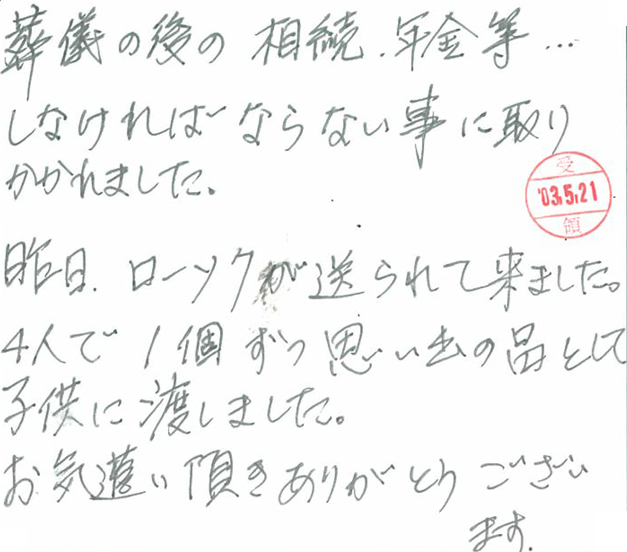 葬儀の後の 相続、年金等…
しなければならない事に取り
かかれました。
受
'03.5.21
領
昨日、ローソクが送られて来ました。
4人で1個ずつ思い出の品として
子供に渡しました。
お気遣い頂きありがとうござい
ます。